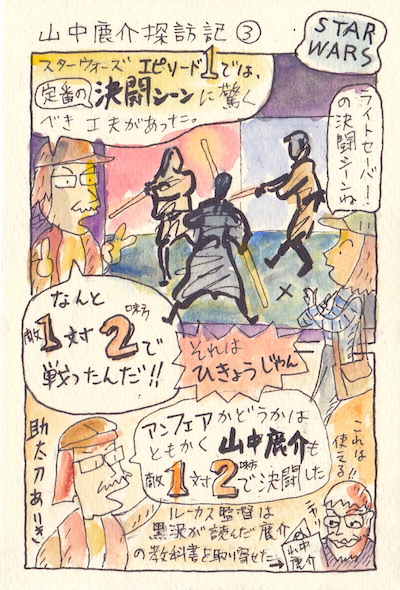 山中鹿介探訪記③
STAR
WARS
スターウォーズエピソード1では、
定番の決闘シーンに驚く
べき工夫があった。
ライトセーバー！
の決闘シーンね
なんと
敵1対2味方で
戦ったんだ!!
それは
ひきょうじゃん
アンフェアかどうかは
ともかく山中鹿介も
敵1対2味方で決闘した
助太刀あいき
これは
使える!!
ルーカス監督は
黒沢が読んだ鹿介
の教科書を取り寄せた→
山中
鹿介